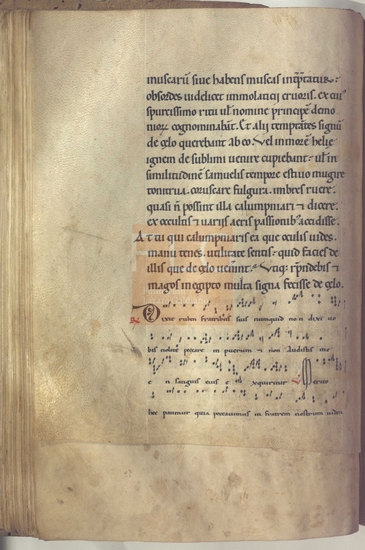 muscarū siue habens muscas int̄p̄tatur.
obsordes uidelicet immolatici cruoris. ex cui'
spurcissimo ritu ul' nomine principē demo
niorꝫ cognominabāt. Et alii temptātes signū
de celo querebant ab eo. Vel in morē helie
ignem de sublimi uenire cupiebant. ul' in
similitudinē samuelis tempore estiuo mugire
tonitrua. coruscare fulgura. imbres ruere.
quasi n̄ possint illa calumpniari ⁊ dicere.
ex occultis ⁊ uariis aeris passionib; accidisse.
At tu qui calumpniaris ea que oculis uides.
manu tenes. utilitate sentis. quid facies de
illis que de celo uenerint. Vtiq; r̄pndebis ⁊
magos in egipto multa signa fecisse de celo.
Dixit ruben fratribus suis numquid non dixi uo
bis nolite peccare in puerum ⁊ non audistis me
e n sanguis eius exquiritur Merito
hec patimur quia peccauimus in fratrem nostrum